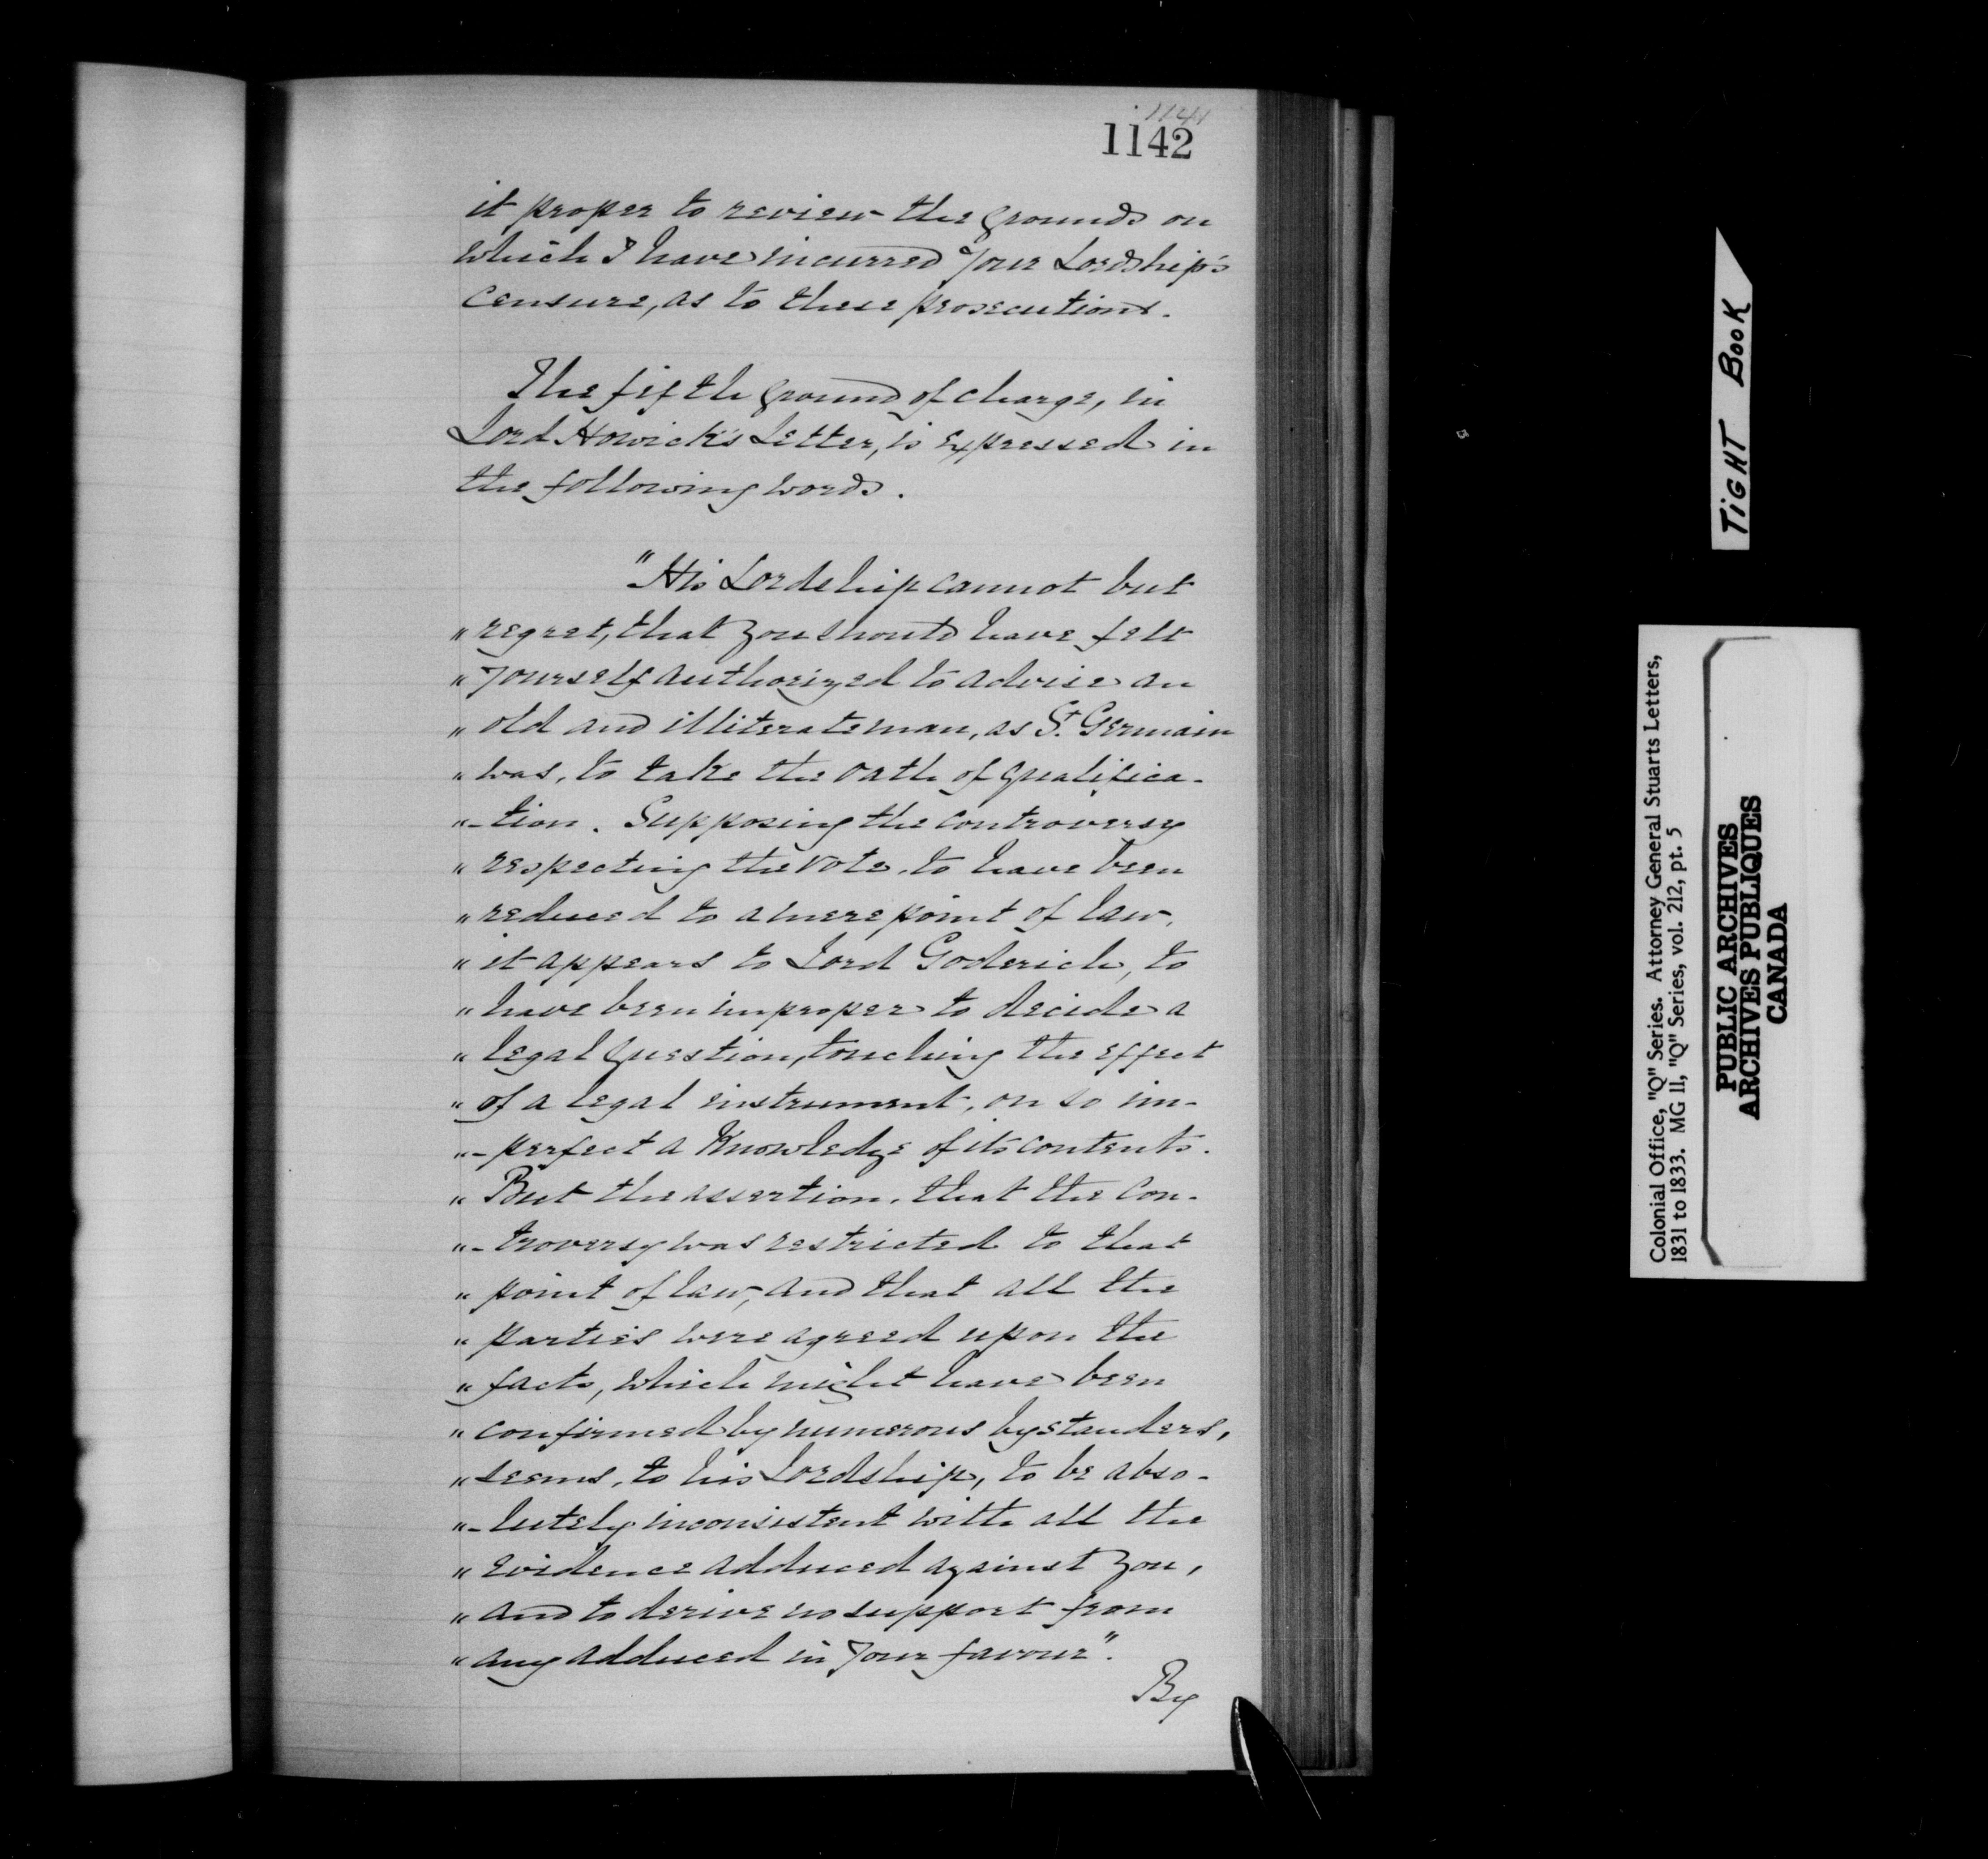 1141
1142
it proper to review the grounds on
which I have incurred your Lordship's
censure, as to these prosecutions.
The fifth ground of charge, in
Lord Howick's Letter, is expressed in
the following words.
"His Lordship cannot but
" regret, that you should have felt
" yourself authorized to advise an
" old and illiterate man, as St. Germain
" was, to take the oath of qualifica-
"-tion. Supposing the controversy
" respecting the vote, to have been
" reduced to a mere point of law,
" it appears to Lord Goderich, to
" have been improper to decide a
" legal question, touching the effect
" of a legal instrument, on so im-
"-perfect a knowledge of its contents.
" But the assertion, that the con-
"-troversy was restricted to that
" point of law, and that all the
" parties were agreed upon the
" facts, which might have been
" confirmed by numerous bystanders,
" seems, to his Lordship, to be abso-
"-lutely inconsistent with all the
" evidence adduced against you,
" and to derive no support from
" any adduced in your favour".
By
TiGHT BOOK
Colonial Office, "Q" Series. Attorney General Stuarts Letters,
1831 to 1833. MG 11, "Q" Series, vol. 212, pt. 5
PUBLIC ARCHIVES
ARCHIVES PUBLIQUES
CANADA